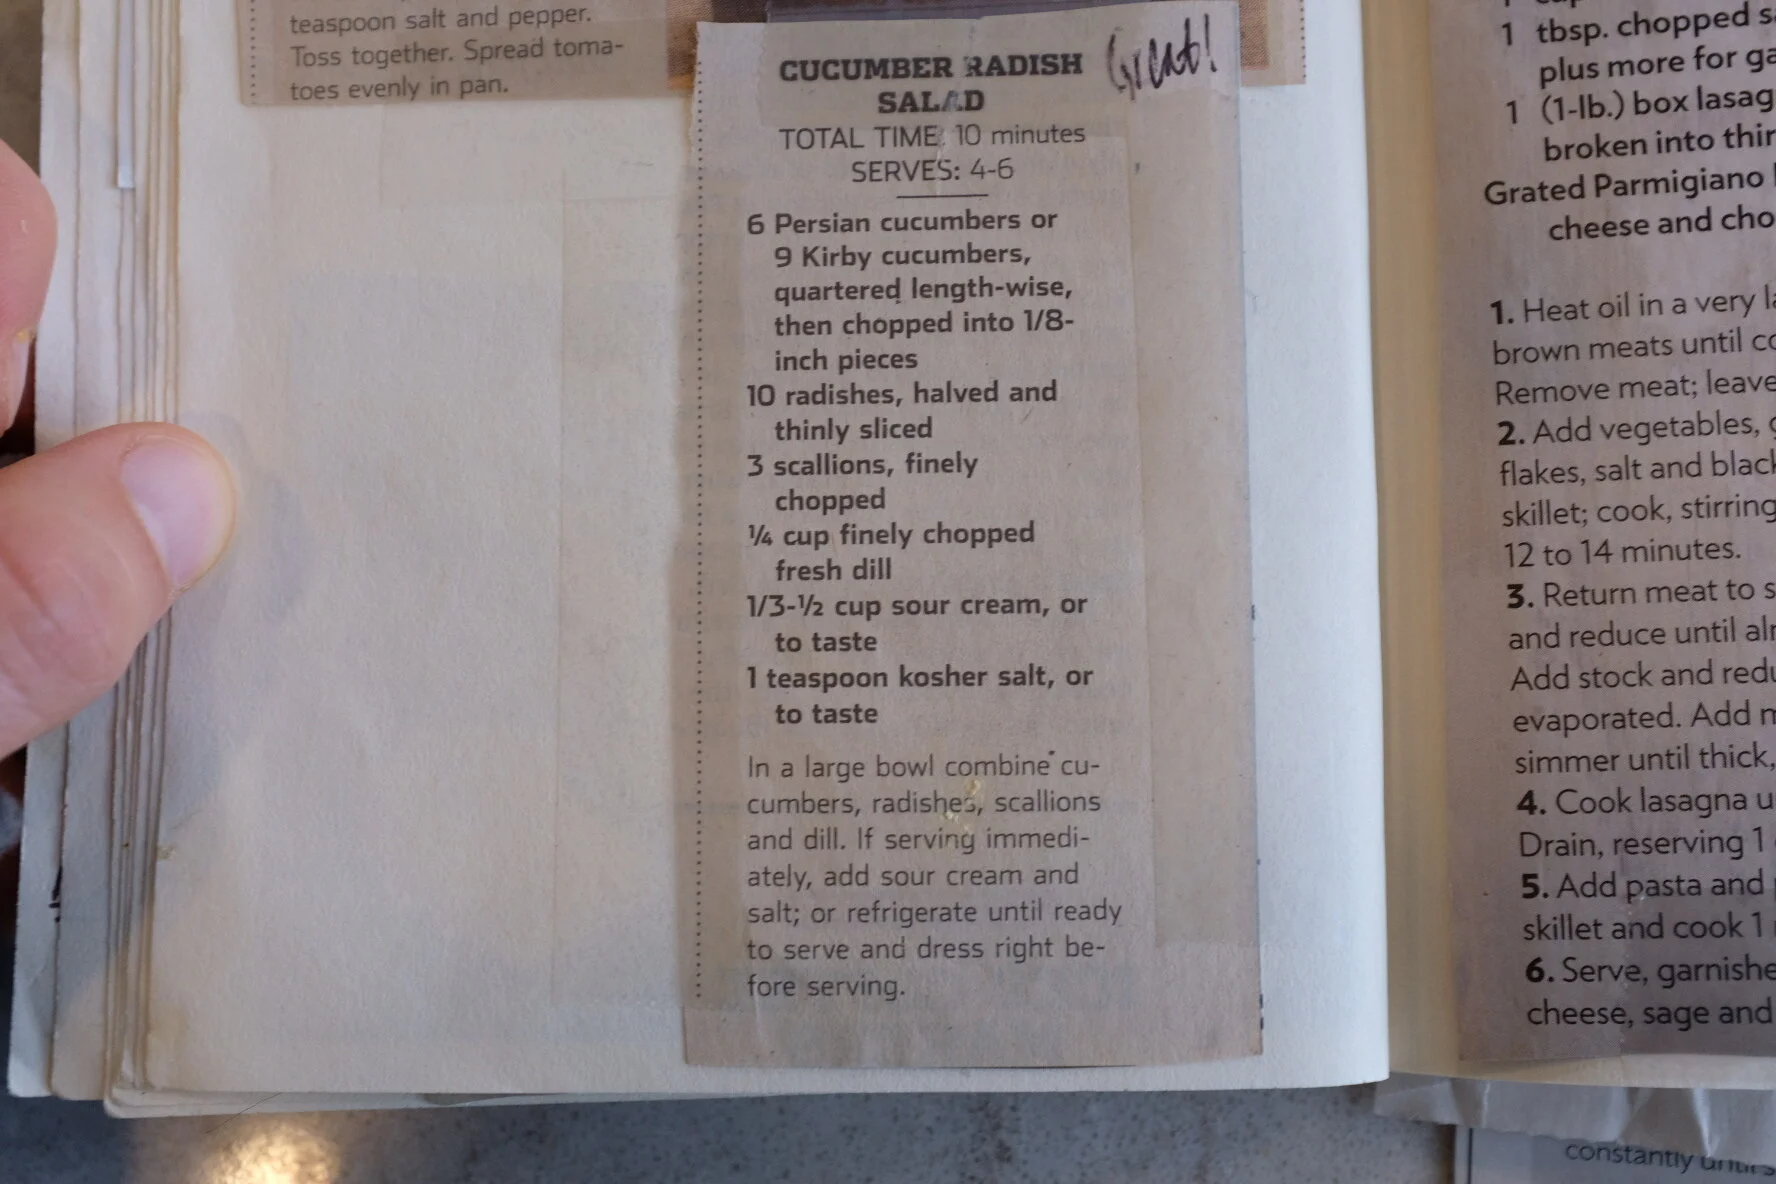 teaspoon salt and pepper.
Toss together. Spread toma-
toes evenly in pan.
CUCUMBER RADISH
SALAD
Great!
TOTAL TIME: 10 minutes
SERVES: 4-6
6 Persian cucumbers or
9 Kirby cucumbers,
quartered length-wise,
then chopped into 1/8-
inch pieces
10 radishes, halved and
thinly sliced
3 scallions, finely
chopped
¼ cup finely chopped
fresh dill
1/3-½ cup sour cream, or
to taste
1 teaspoon kosher salt, or
to taste
In a large bowl combine cu-
cumbers, radishes, scallions
and dill. If serving immedi-
ately, add sour cream and
salt; or refrigerate until ready
to serve and dress right be-
fore serving.
1 tbsp. chopped
plus more for
1 (1-lb.) box
broken into
Grated Parmigiano
cheese and
1. Heat oil in a very
brown meats until
Remove meat; leave
2. Add vegetables,
flakes, salt and
skillet; cook,
12 to 14 minutes.
3. Return meat to
and reduce until
Add stock and
evaporated. Add
simmer until thick,
4. Cook lasagna
Drain, reserving 1
5. Add pasta and
skillet and cook 1
6. Serve,
cheese, sage and
constantly